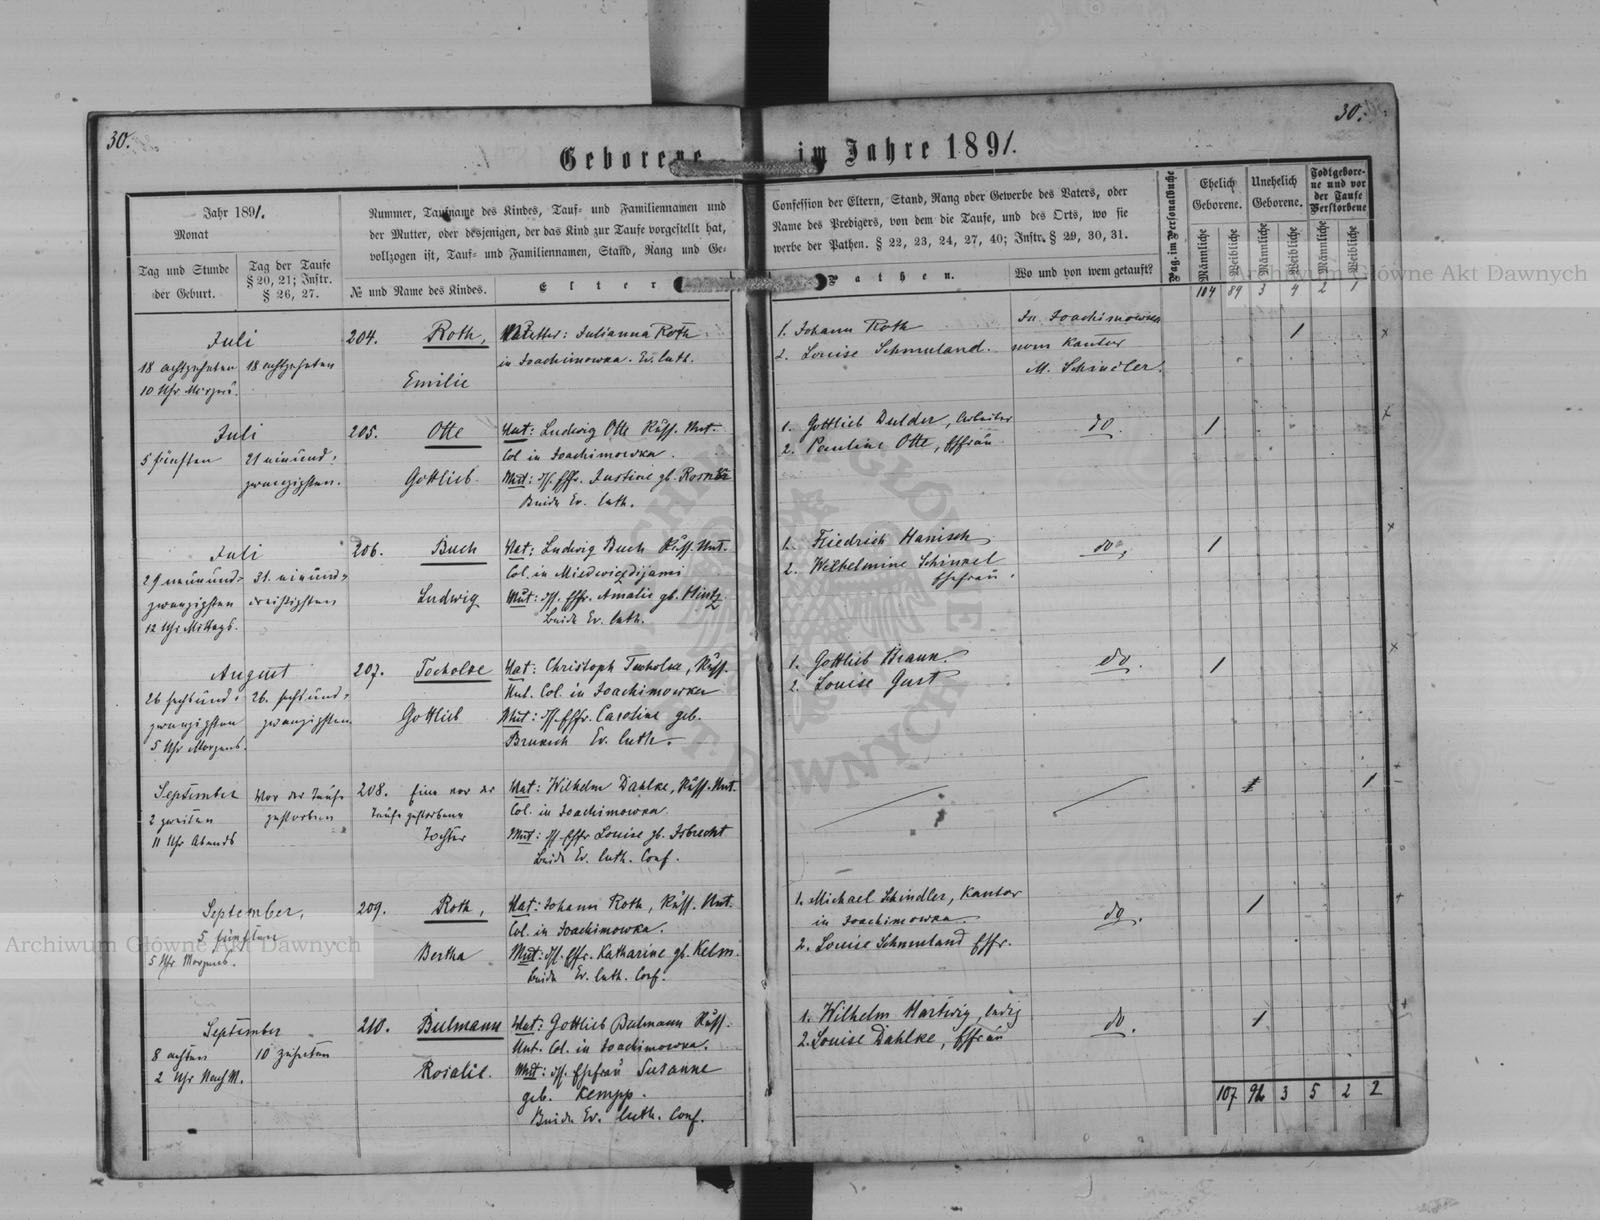 30.
30.
Geborene im Jahre 1891.
Jahr 1891.
Monat
Tag und Stunde
der Geburt.
Tag der Taufe
§ 20, 21; Instr.
§ 26, 27.
Nummer, Taufname des Kindes, Tauf- und Familiennamen und
der Mutter, oder desjenigen, der das Kind zur Taufe vorgestellt hat,
vollzogen ist, Tauf- und Familiennamen, Stand, Rang und Ge-
№ und Name des Kindes.
Elter
Confession der Eltern, Stand, Rang oder Gewerbe des Vaters, oder
Name des Predigers, von dem die Taufe, und des Orts, wo sie
werbe der Pathen. § 22, 23, 24, 27, 40; Instr. § 29, 30, 31.
Pathen.
Wo und von wem getauft?
Pag. im Personalbuche
Ehelich
Geborene.
Unehelich
Geborene.
Todtgebore-
ne und vor
der Taufe
Verstorbene
Männliche
Weibliche
Männliche
Weibliche
Männliche
Weibliche
104 89 3 4 2 1
Juli
18 achtzehnten
10 Uhr Morgens.
18 achtzehnten
204. Roth,
Emilie
Mutter: Julianna Roth
in Joachimowka. Ev. luth.
1. Johann Roth
2. Louise Schmuland.
In Joachimowka
vom Kantor
M. Schindler.
1
Juli
5 fünften
21 einund-
zwanzigsten.
205. Otte
Gottlieb
Vat: Ludwig Otte Russ. Unt.
Col. in Joachimowka.
Mut: Ehfr. Justine gb.
Beide Ev. luth.
1. Gottlieb Dulder, Arbeiter
2. Pauline Otte, Ehfrau
do.
1
Juli
29 neunund-
zwanzigsten
12 Uhr Mittags.
31. einund-
dreißigsten
206. Buch
Ludwig
Vat: Ludwig Buch Russ. Unt.
Col. in Miedwiezdijami
Mut: Ehfr. Amalie gb. Hintz
beide Ev. luth.
1. Friedrich Hanisch
2. Wilhelmine Schinkel
Ehefrau.
do.
1
August
26 sechsund-
zwanzigsten
5 Uhr Morgens
26. sechsund-
zwanzigsten.
207. Tocholke
Gottlieb
Vat: Christoph Tocholke, Russ.
Unt. Col. in Joachimowka
Mut: Ehfr. Caroline geb.
Ev. luth.
1. Gottlieb Braun.
2. Louise Gust
do.
1
September
2 zweiten
11 Uhr Abends
Vor der Taufe
gestorben
208. Eine vor der
Taufe gestorbene
Tochter
Vat: Wilhelm Dahlke, Russ. Unt.
Col. in Joachimowka
Mut: Ehfr. Louise gb. Isbrecht
beide Ev. luth. Conf.
1
September,
5 fünften
5 Uhr Morgens.
209. Roth,
Bertha
Vat: Johann Roth, Russ. Unt.
Col. in Joachimowka.
Mut: Ehfr. Katharine gb. Kelm.
beide Ev. luth. Conf.
1. Michael Schindler, Kantor
in Joachimowka
2. Louise Schmuland Ehfr.
do.
1
September
8 achten
2 Uhr Nachm.
10 zehnten
210. Bulmann
Rosalie.
Vat: Gottlieb Bulmann Russ.
Unt. Col. in Joachimowka.
Mut: Ehefrau Susanne
geb. Kempp.
Beide Ev. luth. Conf.
1. Wilhelm Hartwig, ledig
2. Louise Dahlke, Ehfrau
do.
1
107 92 3 5 2 2
Archiwum Główne Akt Dawnych
Archiwum Główne Akt Dawnych